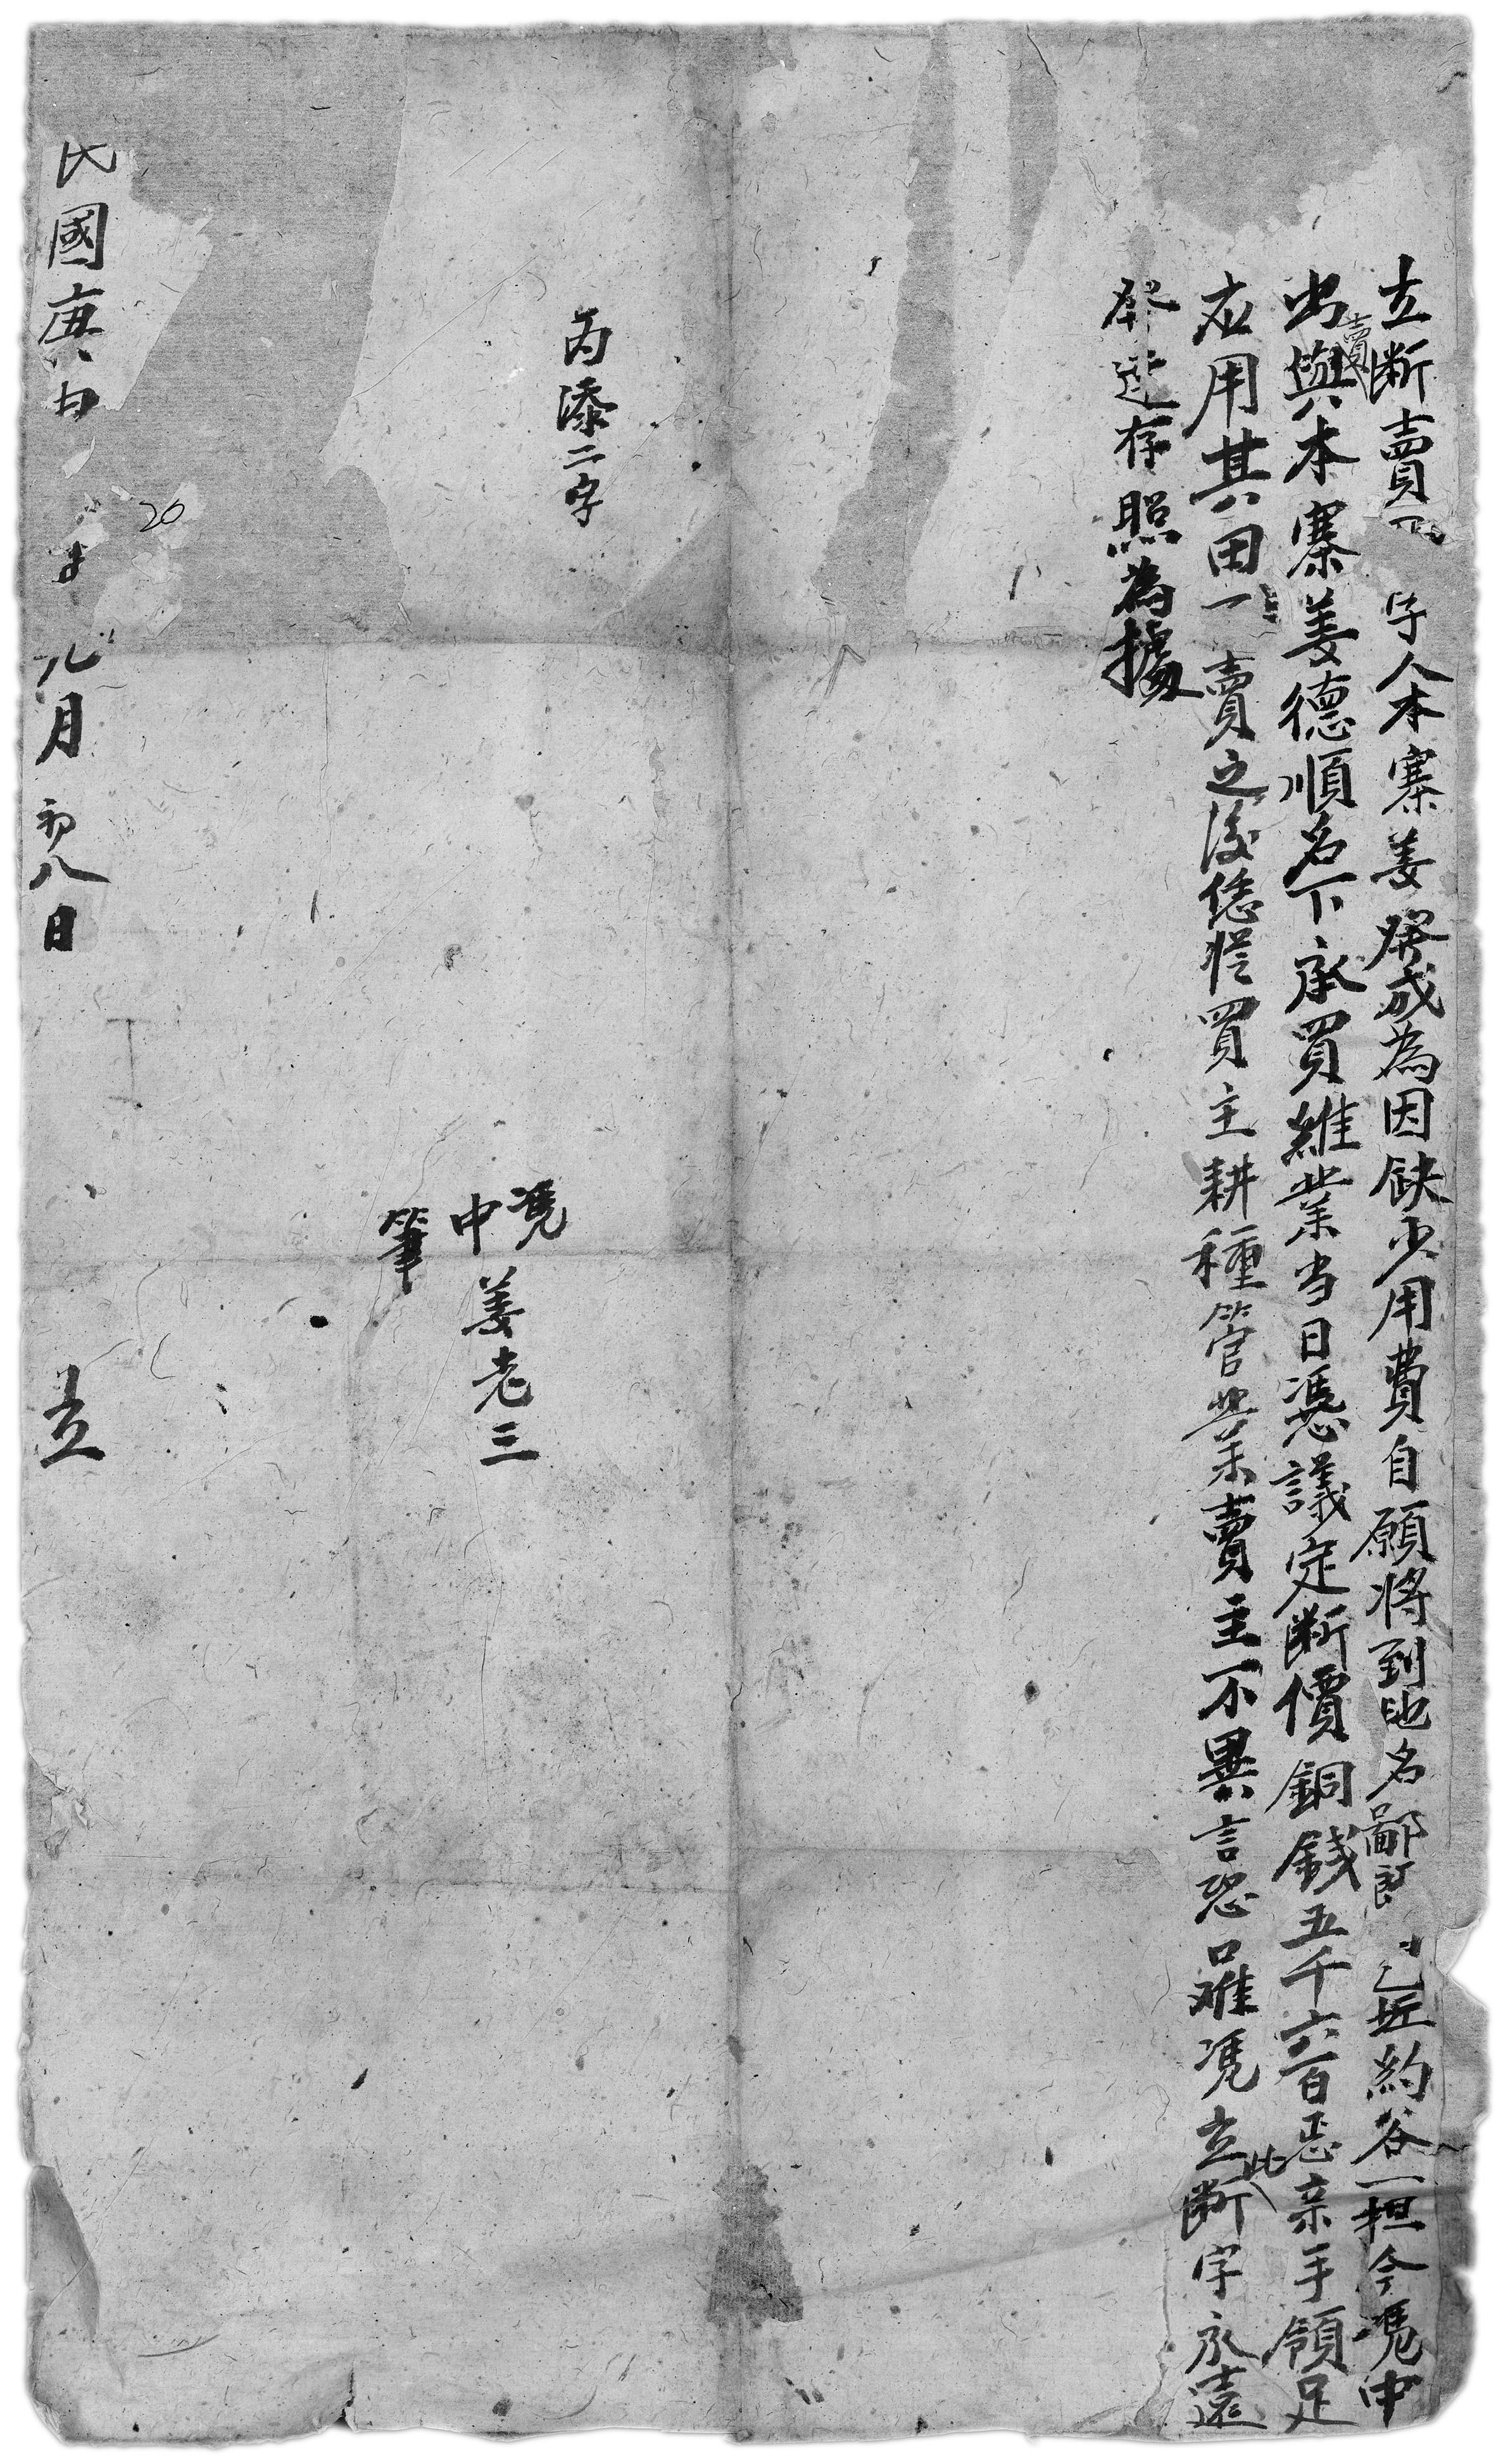 立断賣 字人本寨姜發成為因缺少用費自願将到地名鄙 坵約谷一担今凴中
出賣與本寨姜德順名下承買維業当日憑議定断價銅錢五千六百恧亲手領足
应用其田一賣之後恁從買主耕種管業賣主不異言恐口难凴立此断字永遠
發達存照為據
內添二字
凴
中
姜老三
筆
民國庚 九月初八日 立
20